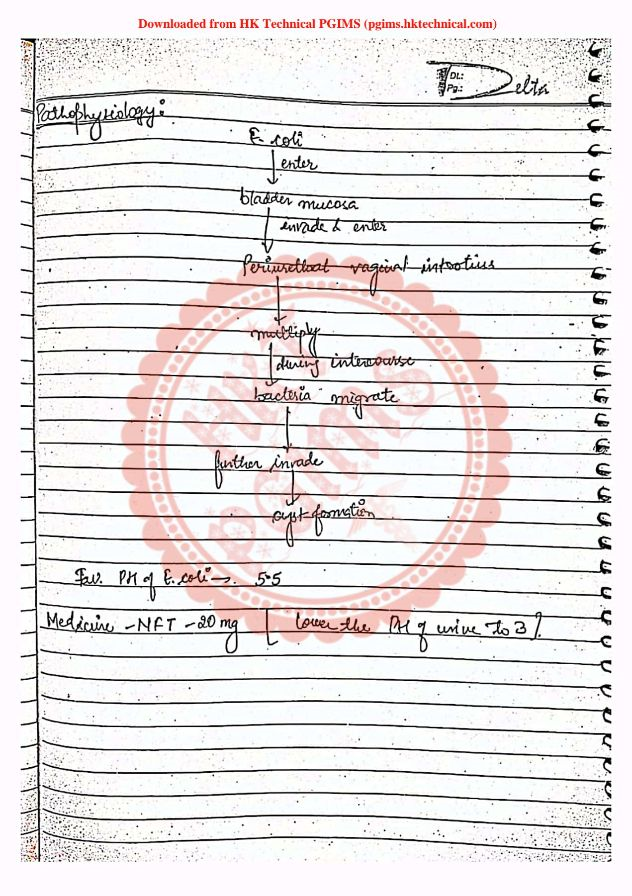 Downloaded from HK Technical PGIMS (pgims.hktechnical.com)
DL:
Pg.:
Delta
Pathophysiology:
E. coli
enter
bladder mucosa
invade & enter
Periurethral vaginal introitius
multiply
during intercourse
bacteria migrate
further invade
cyst formation
Fav. PH of E.coli → 5.5
Medicine - NFT - 20 mg [ lower the PH of urine to 3 %.
HK
PGIMS